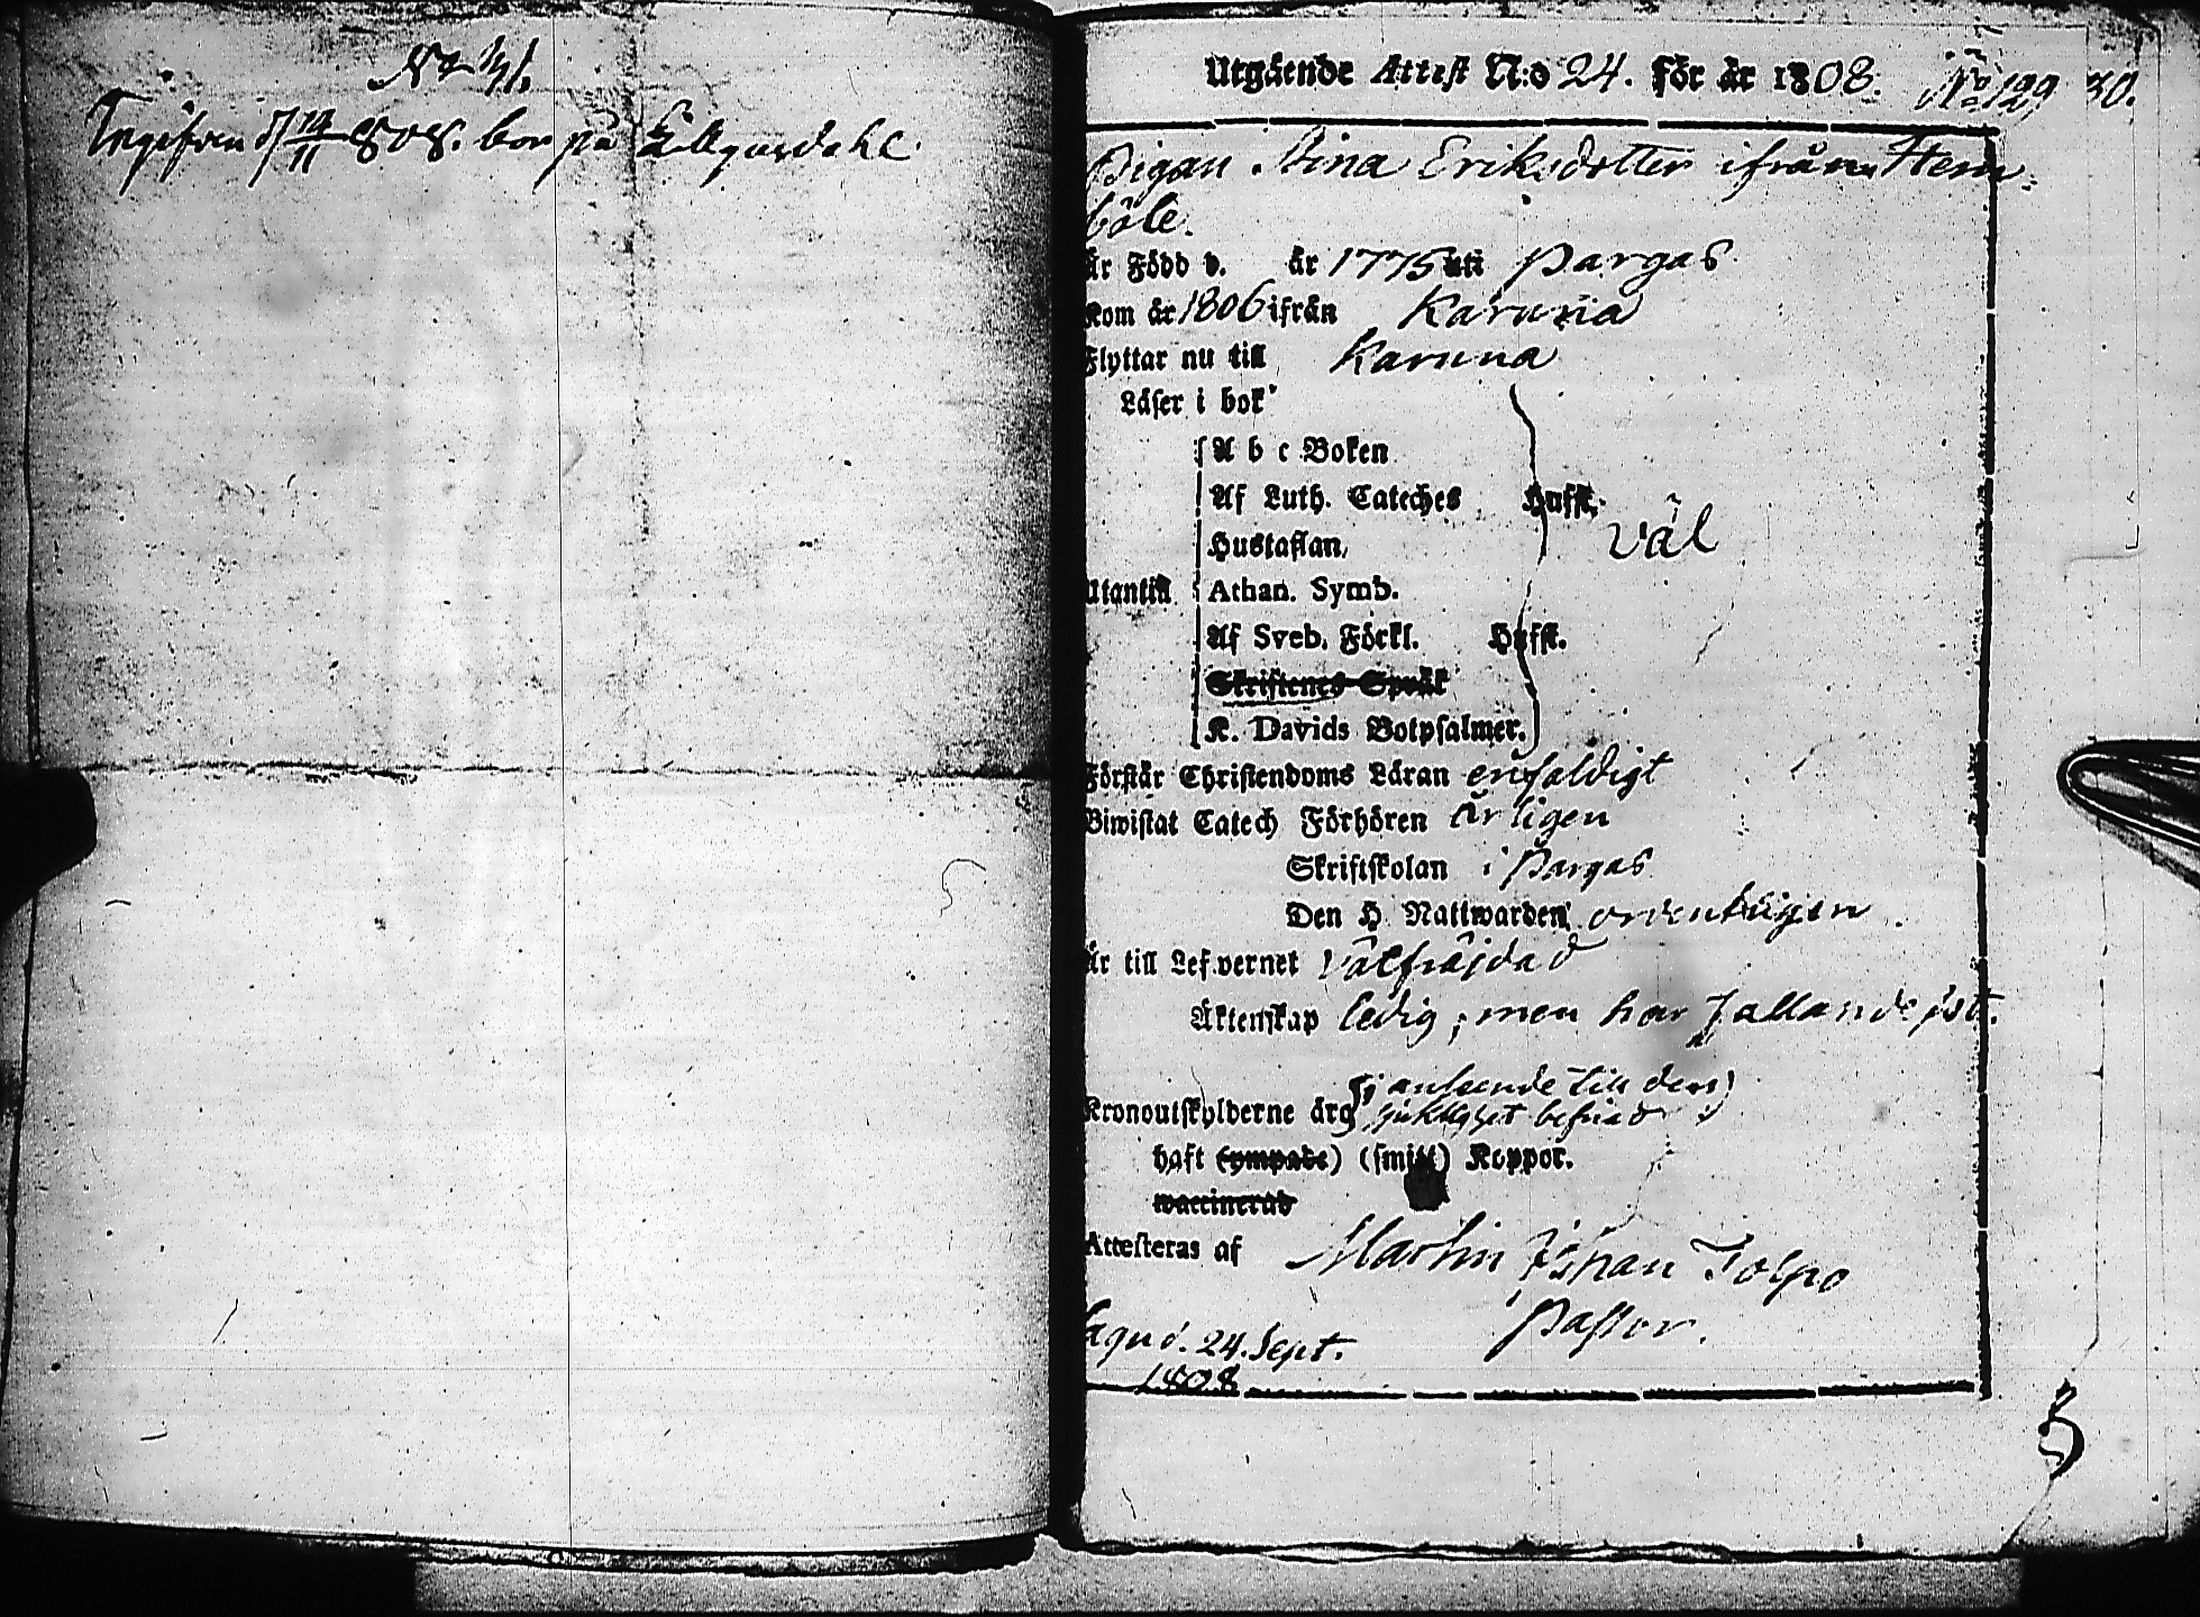 Ingifven d 14/11 808. bor på
Utgående Attest N:o 24. för år 1808. No 129 30.
Pigan Stina Eriksdotter ifrån Hem=
böle.
Är Född d. år 1775 uti Pargas
Kom år 1806 ifrån Karuna
Flyttar nu till Karuna
Läser i bok
A b c Boken
Af Luth. Cateches Hufst.
Hustaflan, väl
Utantill Athan. Symb.
Af Sveb. Förkl. Hufst.
Skriftenes Språk
K. Davids Botpsalmer.
Förstår Christendoms Läran enfaldigt
Biwistat Catech Förhören årligen
Skriftskolan i Pargas
Den H Nattwarden ordenteligen.
Är till Lefvernet välfräjdad
Äktenskap ledig; men har fallandesot.
i anseende till den
Kronoutskylderne äro sjuklighet befriad
haft (ympade) (smitt) Koppor.
waccinerad
Attesteras af Martin Johan Tolpo
Pastor.
Sagu d. 24. Sept.
1808